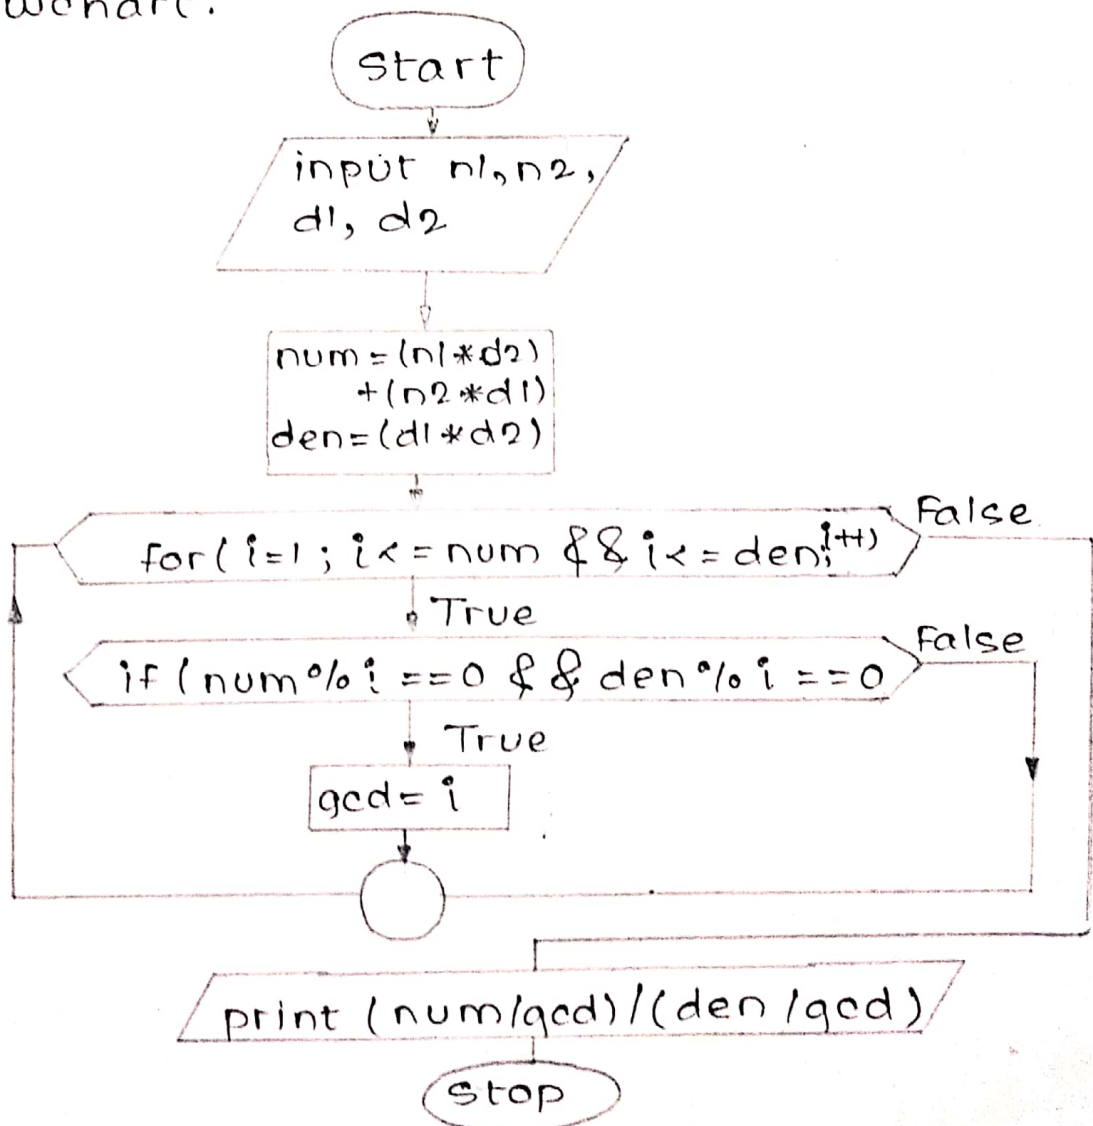 Start
input n1, n2,
d1, d2
num = (n1*d2)
+(n2*d1)
den=(d1*d2)
for(i=1; i<=num && i<=den; i++)
False
True
if (num%i ==0 && den%i ==0
False
True
gcd= i
print (num/gcd)/(den/gcd)
Stop